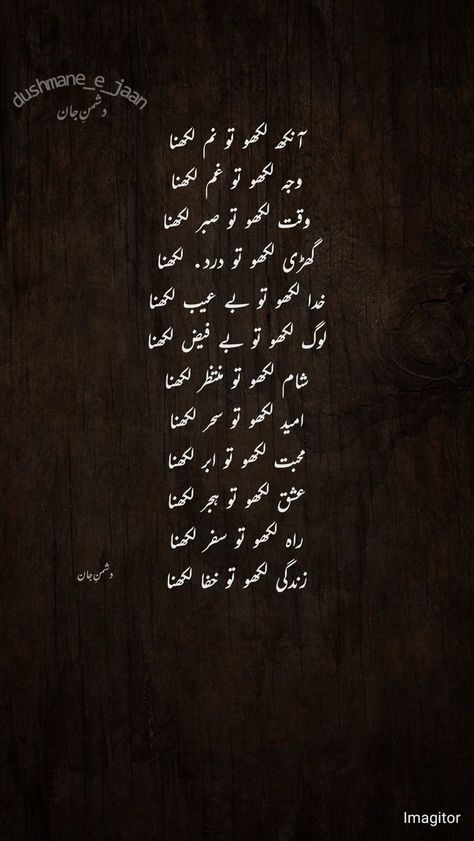 dushmane_e_jaan
دشمنِ جان
آنکھ لکھو تو نم لکھنا
وجہ لکھو تو غم لکھنا
وقت لکھو تو صبر لکھنا
گھڑی لکھو تو درد. لکھنا
خدا لکھو تو بے عیب لکھنا
لوگ لکھو تو بے فیض لکھنا
شام لکھو تو منتظر لکھنا
امید لکھو تو سحر لکھنا
محبت لکھو تو ابر لکھنا
عشق لکھو تو ہجر لکھنا
راہ لکھو تو سفر لکھنا
زندگی لکھو تو خفا لکھنا
دشمنِ جان
Imagitor